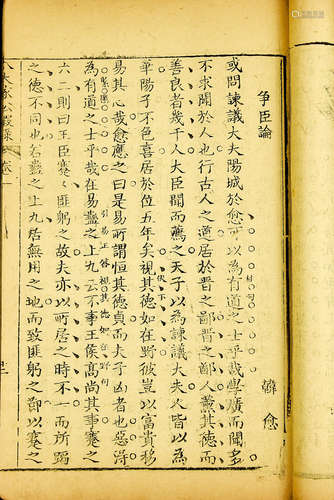 爭臣論
韓愈
或問諫議大夫陽城於愈可以為有道之士乎哉學廣而聞多
不求聞於人也行古人之道居於晋之鄙晋之鄙人薰其德而
善良者幾千人大臣聞而薦之天子以為諫議大夫人皆以為
華陽子不色喜居於位五年矣視其德如在野彼豈以富貴移
易其心哉愈應之曰是易所謂恒其德貞而夫子凶者也惡得
為有道之士乎哉在易蠱之上九云不事王侯髙尚其事蹇之
六二則曰王臣蹇〻匪躬之故夫亦以所居之時不一而所蹈
之德不同也若蠱之上九居無用之地而致匪躬之節以蹇之